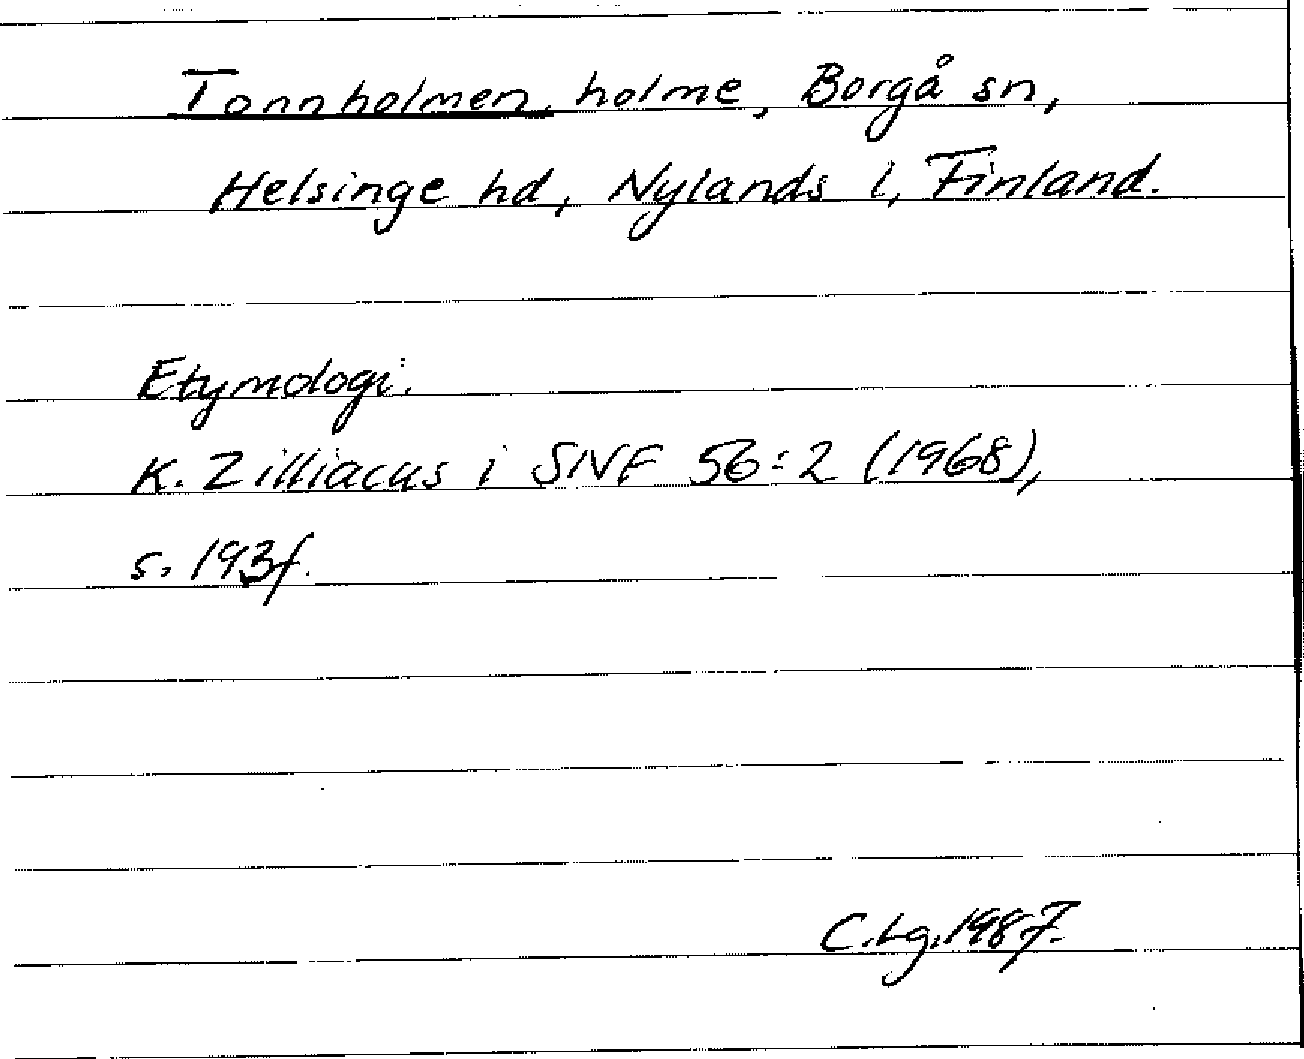 Tonnholmen, holme, Borgå sn,
Helsinge hd, Nylands l, Finland.
Etymologi.
K. Zilliacus i SNF 56:2 (1968),
s. 193f.
C.Lg.1987.